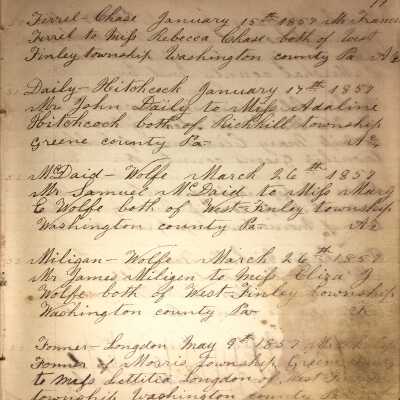 Ferrel - Chase January 15th 1857 Mr Francis
Ferrel to Miss Rebecca Chase both of West
Finley township Washington county Pa
Daily - Hitchcock January 17th 1857
Mr John Daily to Miss Adaline
Hitchcock both of Richhill township
Greene county Pa
McDaid - Wolfe March 26th 1857
Mr Samuel McDaid to Miss Mary
C Wolfe both of West-Finley township
Washington county Pa
Miligan - Wolfe March 26th 1857
Mr James Miligen to Miss Eliza J
Wolfe both of West-Finley Township
Washington county Pa
Fonner - Longdon May 9th 1857
Fonner of Morris Township Greene
to Miss Lettitia Longdon of West
township Washington county Pa